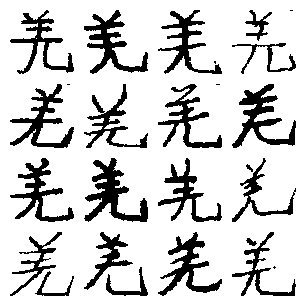 羌羌羌羌
羌羌羌羌
羌羌羌羌
羌羌羌羌